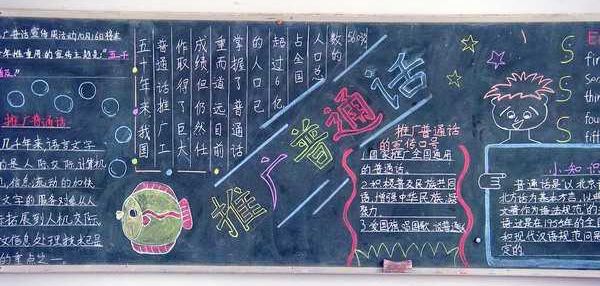 广普话宣传周活动10月16日将来
年推重用的宣传主题是:"五一干
推广普通话
几十年来语言文字
的是人际交际,计算机
信息流动的加快
文字的服务对象从人
际拓展到人机交际,
文信息处理技术已是
的重点之一
五十年来我国
普通话推广工
作取得了巨大
成绩但仍然任
重而道远目前
掌握了普通话
的人口已
超过6亿
占全国
人口总
数的
50%
推广普通话
推广普通话
的宣传口号
1.国家推广全国通用
的普通话。
2.积极普及民族共同
语,增强中华民族凝
聚力
3.爱国旗,唱国歌,说普通话
S
S
S
E
fir
Se
thi
fou
fif
小知识
普通话是以北京语
北方话为基本方言,以
文著作为语法规范的
语这是在1955年的全国
和现代汉语规范问
定的。